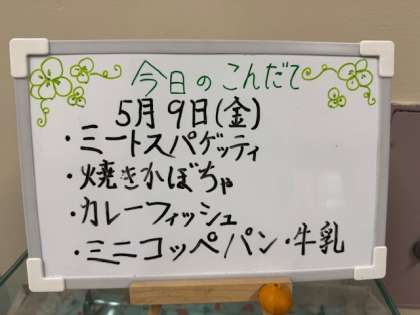 今日のこんだて
5月9日(金)
・ミートスパゲッティ
・焼きかぼちゃ
・カレーフィッシュ
・ミニコッペパン・牛乳